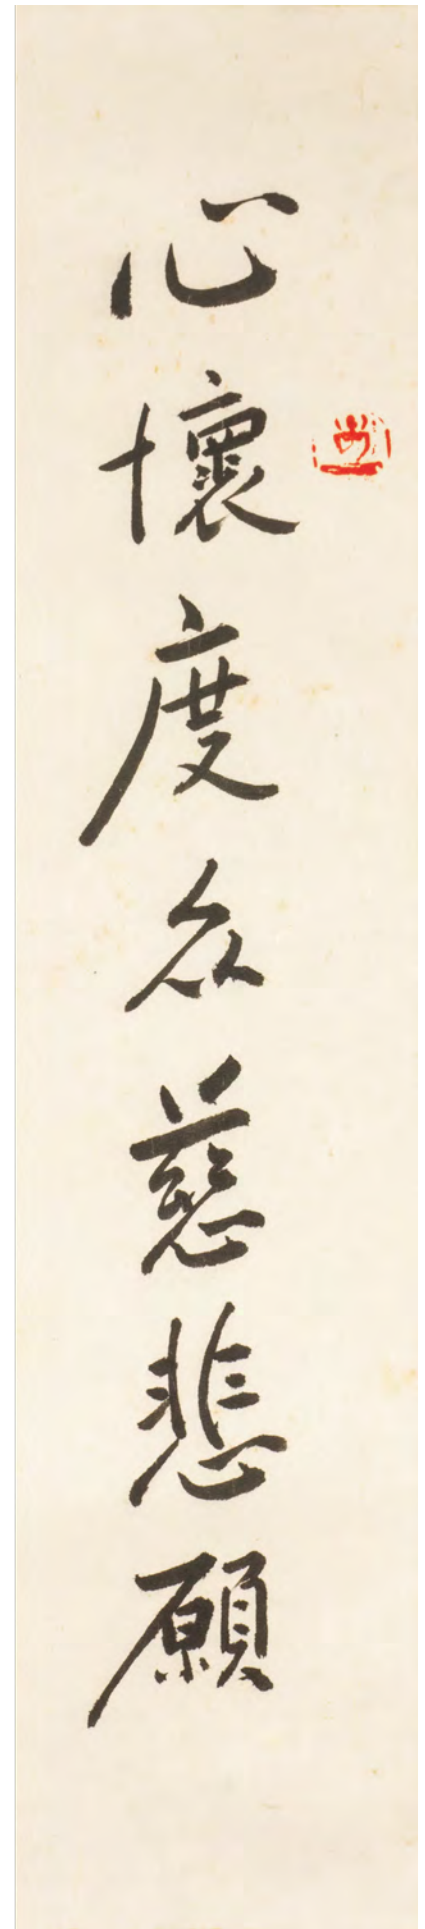 心懷度众慈悲願